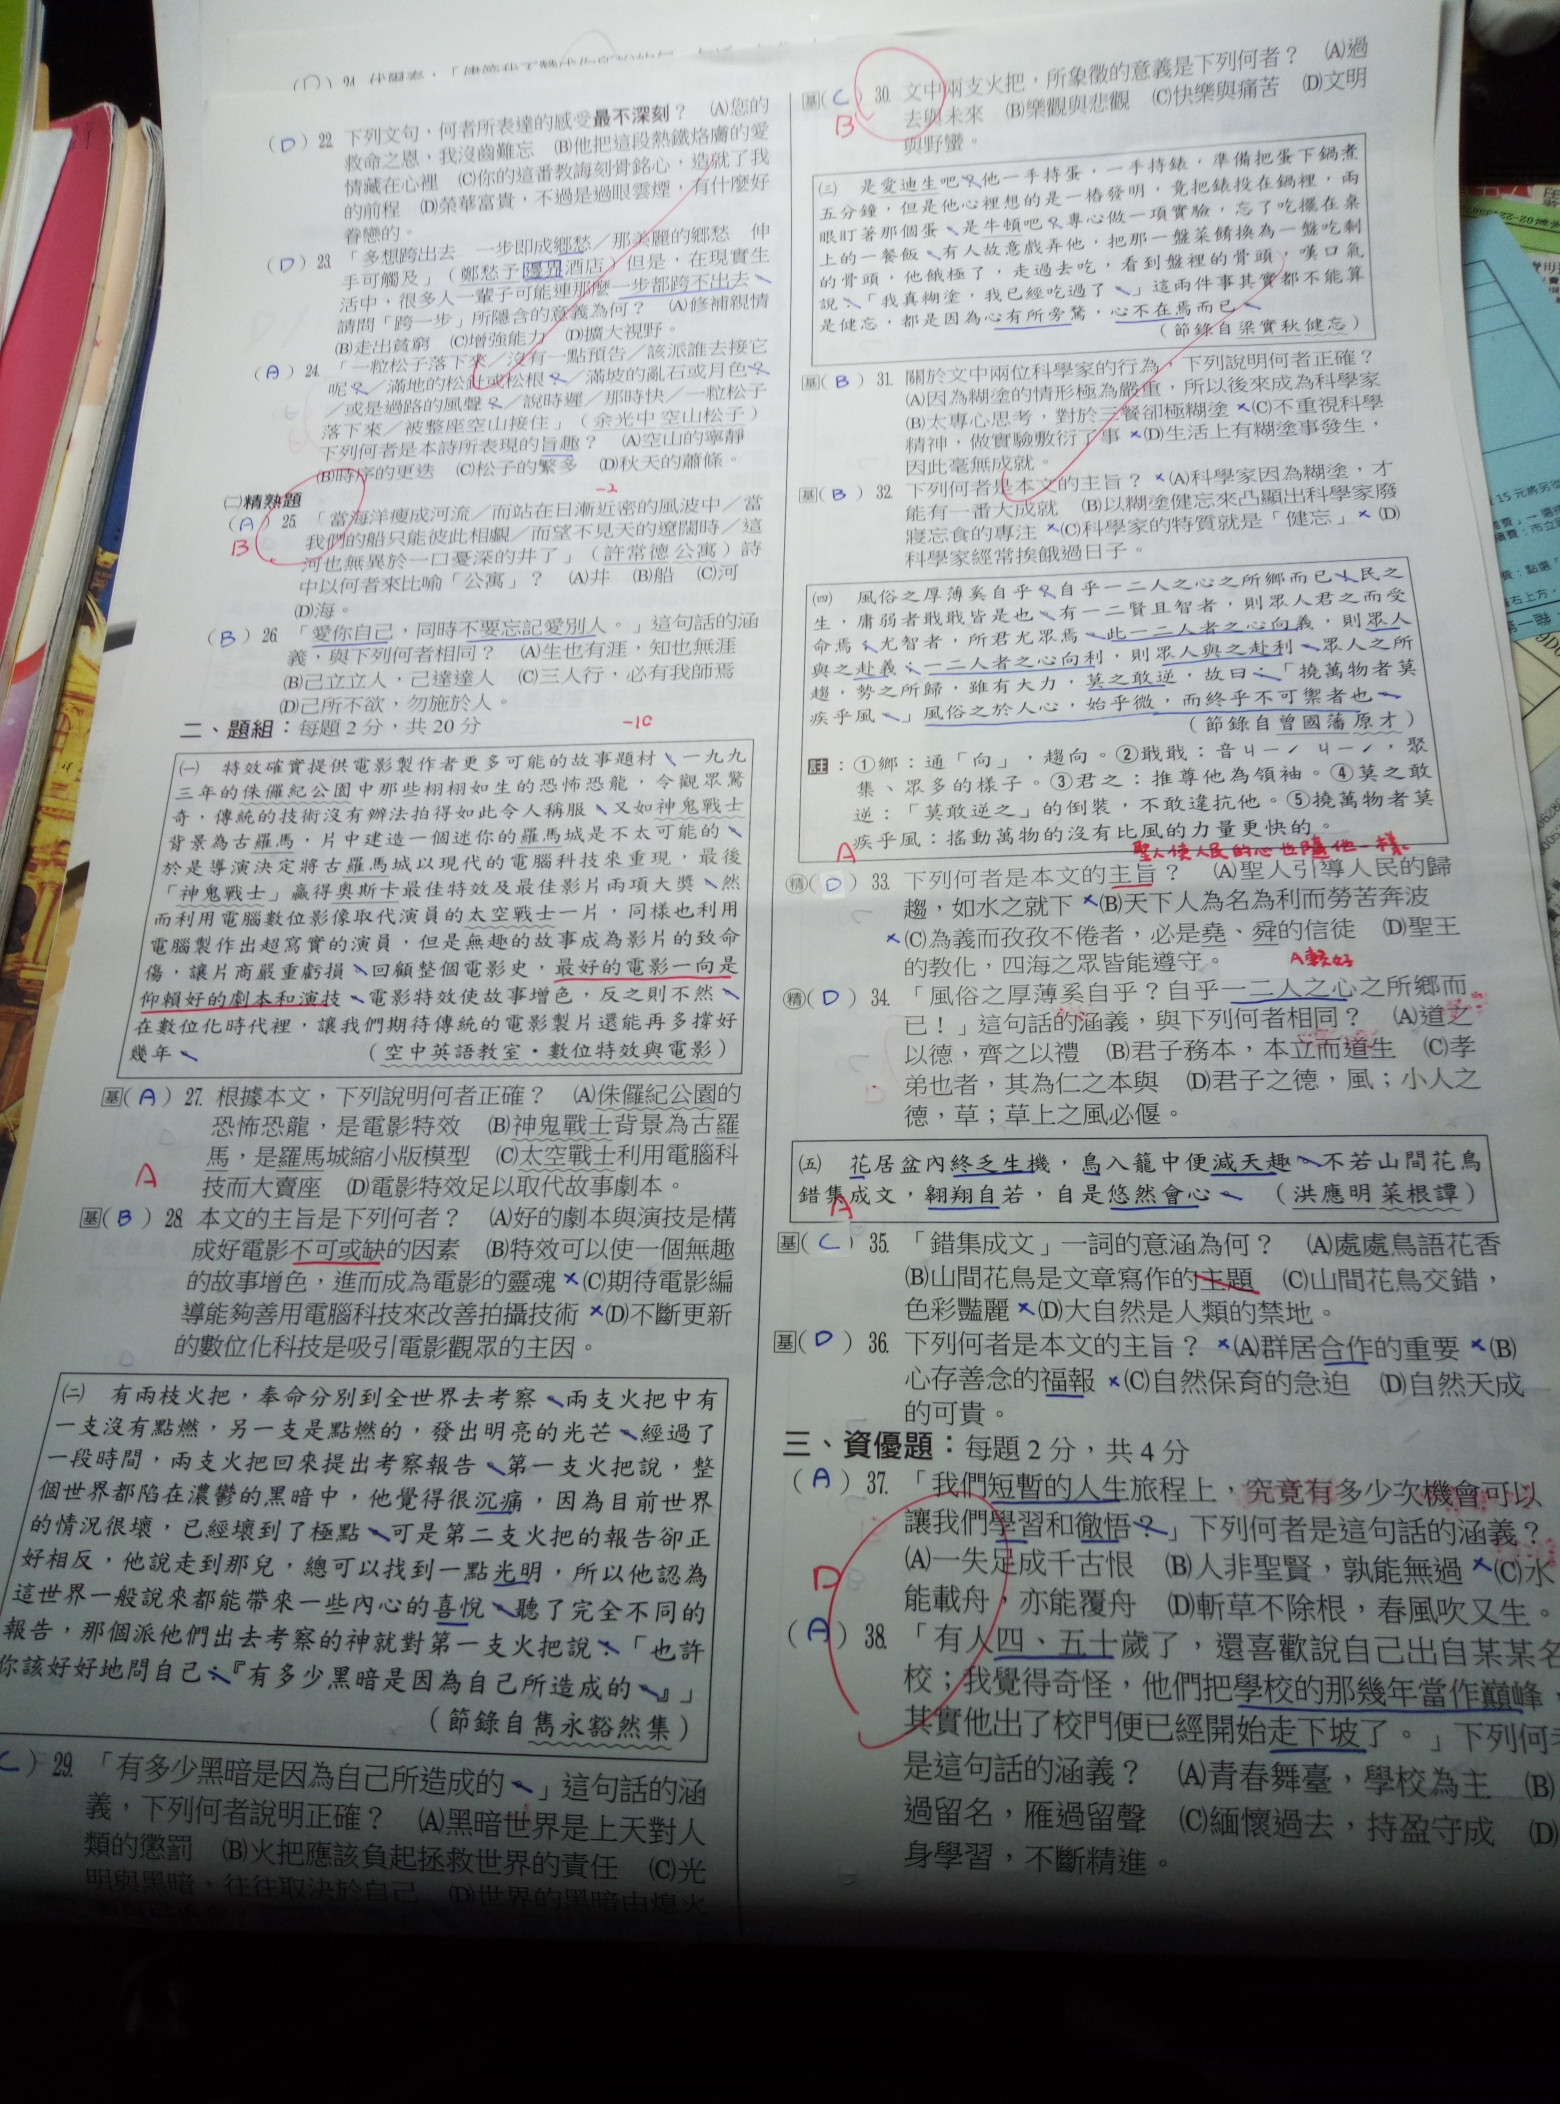 (D) 22. 下列文句，何者所表達的感受最不深刻？　(A)您的
救命之恩，我沒齒難忘　(B)他把這段熱鐵烙膚的愛
情藏在心裡　(C)你的這番教誨刻骨銘心，造就了我
的前程　(D)榮華富貴，不過是過眼雲煙，有什麼好
眷戀的。
(D) 23. 「多想跨出去　一步即成鄉愁／那美麗的鄉愁　伸
手可觸及」（鄭愁予邊界酒店）但是，在現實生
活中，很多人一輩子可能連那麼一步都跨不出去、
請問「跨一步」所隱含的意義為何？　(A)修補親情
(B)走出貧窮　(C)增強能力　(D)擴大視野。
(A) 24. 「一粒松子落下來／沒有一點預告／該派誰去接它
呢？／滿地的松針或松根？／滿坡的亂石或月色？
／或是過路的風聲？／說時遲／那時快／一粒松子
落下來／被整座空山接住」（余光中空山松子）
下列何者是本詩所表現的旨趣？　(A)空山的寧靜
(B)時序的更迭　(C)松子的繁多　(D)秋天的蕭條。
㈡精熟題
-2
(A) 25. 「當海洋瘦成河流／而站在日漸近密的風波中／當
B
我們的船只能彼此相覷／而望不見天的遼闊時／這
河也無異於一口憂深的井了」（許常德公寓）詩
中以何者來比喻「公寓」？　(A)井　(B)船　(C)河
(D)海。
(B) 26. 「愛你自己，同時不要忘記愛別人。」這句話的涵
義，與下列何者相同？　(A)生也有涯，知也無涯
(B)己立立人，己達達人　(C)三人行，必有我師焉
(D)己所不欲，勿施於人。
二、題組：每題2分，共20分
-10
㈠　特效確實提供電影製作者更多可能的故事題材、一九九
三年的侏儸紀公園中那些栩栩如生的恐怖恐龍，令觀眾驚
奇，傳統的技術沒有辦法拍得如此令人稱服、又如神鬼戰士
背景為古羅馬，片中建造一個迷你的羅馬城是不太可能的、
於是導演決定將古羅馬城以現代的電腦科技來重現，最後
「神鬼戰士」贏得奧斯卡最佳特效及最佳影片兩項大獎、然
而利用電腦數位影像取代演員的太空戰士一片，同樣也利用
電腦製作出超寫實的演員，但是無趣的故事成為影片的致命
傷，讓片商嚴重虧損、回顧整個電影史，最好的電影一向是
仰賴好的劇本和演技、電影特效使故事增色，反之則不然、
在數位化時代裡，讓我們期待傳統的電影製片還能再多撐好
幾年、　（空中英語教室・數位特效與電影）
基(A) 27. 根據本文，下列說明何者正確？　(A)侏儸紀公園的
恐怖恐龍，是電影特效　(B)神鬼戰士背景為古羅
馬，是羅馬城縮小版模型　(C)太空戰士利用電腦科
技而大賣座　(D)電影特效足以取代故事劇本。
A
基(B) 28. 本文的主旨是下列何者？　(A)好的劇本與演技是構
成好電影不可或缺的因素　(B)特效可以使一個無趣
的故事增色，進而成為電影的靈魂　×(C)期待電影編
導能夠善用電腦科技來改善拍攝技術　×(D)不斷更新
的數位化科技是吸引電影觀眾的主因。
㈡　有兩枝火把，奉命分別到全世界去考察、兩支火把中有
一支沒有點燃，另一支是點燃的，發出明亮的光芒、經過了
一段時間，兩支火把回來提出考察報告、第一支火把說，整
個世界都陷在濃鬱的黑暗中，他覺得很沉痛，因為目前世界
的情況很壞，已經壞到了極點、可是第二支火把的報告卻正
好相反，他說走到那兒，總可以找到一點光明，所以他認為
這世界一般說來都能帶來一些內心的喜悅、聽了完全不同的
報告，那個派他們出去考察的神就對第一支火把說：「也許
你該好好地問自己：『有多少黑暗是因為自己所造成的、』」
（節錄自雋永豁然集）
C) 29. 「有多少黑暗是因為自己所造成的、」這句話的涵
義，下列何者說明正確？　(A)黑暗世界是上天對人
類的懲罰　(B)火把應該負起拯救世界的責任　(C)光
明與黑暗，往往取決於自己　(D)世界的黑暗由熄火
基(C) 30. 文中兩支火把，所象徵的意義是下列何者？　(A)過
B
去與未來　(B)樂觀與悲觀　(C)快樂與痛苦　(D)文明
與野蠻。
㈢　是愛迪生吧？他一手持蛋，一手持錶，準備把蛋下鍋煮
五分鐘，但是他心裡想的是一樁發明，竟把錶投在鍋裡，兩
眼盯著那個蛋、是牛頓吧？專心做一項實驗，忘了吃擺在桌
上的一餐飯、有人故意戲弄他，把那一盤菜餚換為一盤吃剩
的骨頭，他餓極了，走過去吃，看到盤裡的骨頭，嘆口氣
說：「我真糊塗，我已經吃過了、」這兩件事其實都不能算
是健忘，都是因為心有所旁騖，心不在焉而已、
（節錄自梁實秋健忘）
基(B) 31. 關於文中兩位科學家的行為，下列說明何者正確？
(A)因為糊塗的情形極為嚴重，所以後來成為科學家
(B)太專心思考，對於三餐卻極糊塗　×(C)不重視科學
精神，做實驗敷衍了事　×(D)生活上有糊塗事發生，
因此毫無成就。
基(B) 32. 下列何者是本文的主旨？　×(A)科學家因為糊塗，才
能有一番大成就　(B)以糊塗健忘來凸顯出科學家廢
寢忘食的專注　×(C)科學家的特質就是「健忘」　×(D)
科學家經常挨餓過日子。
㈣　風俗之厚薄奚自乎？自乎一二人之心之所鄉而已、民之
生，庸弱者戢戢皆是也、有一二賢且智者，則眾人君之而受
命焉、尤智者，所君尤眾焉、此一二人者之心向義，則眾人
與之赴義；一二人者之心向利，則眾人與之赴利、眾人之所
趨，勢之所歸，雖有大力，莫之敢逆，故曰：「撓萬物者莫
疾乎風、」風俗之於人心，始乎微，而終乎不可禦者也、
（節錄自曾國藩原才）
註：①鄉：通「向」，趨向。②戢戢：音ㄐㄧˊ ㄐㄧˊ，聚
集、眾多的樣子。③君之：推尊他為領袖。④莫之敢
逆：「莫敢逆之」的倒裝，不敢違抗他。⑤撓萬物者莫
疾乎風：搖動萬物的沒有比風的力量更快的。
A
聖人使人民的心也隨他一樣。
精(D) 33. 下列何者是本文的主旨？　(A)聖人引導人民的歸
趨，如水之就下　×(B)天下人為名為利而勞苦奔波
×(C)為義而孜孜不倦者，必是堯、舜的信徒　(D)聖王
的教化，四海之眾皆能遵守。
A較好
精(D) 34. 「風俗之厚薄奚自乎？自乎一二人之心之所鄉而
已！」這句話的涵義，與下列何者相同？　(A)道之
以德，齊之以禮　(B)君子務本，本立而道生　(C)孝
弟也者，其為仁之本與　(D)君子之德，風；小人之
德，草；草上之風必偃。
㈤　花居盆內終乏生機，鳥入籠中便減天趣、不若山間花鳥
錯集成文，翱翔自若，自是悠然會心、　（洪應明菜根譚）
A
基(C) 35. 「錯集成文」一詞的意涵為何？　(A)處處鳥語花香
(B)山間花鳥是文章寫作的主題　(C)山間花鳥交錯，
色彩豔麗　×(D)大自然是人類的禁地。
基(D) 36. 下列何者是本文的主旨？　×(A)群居合作的重要　×(B)
心存善念的福報　×(C)自然保育的急迫　(D)自然天成
的可貴。
三、資優題：每題2分，共4分
(A) 37. 「我們短暫的人生旅程上，究竟有多少次機會可以
讓我們學習和徹悟？」下列何者是這句話的涵義？
(A)一失足成千古恨　(B)人非聖賢，孰能無過　×(C)水
能載舟，亦能覆舟　(D)斬草不除根，春風吹又生。
D
(A) 38. 「有人四、五十歲了，還喜歡說自己出自某某名
校；我覺得奇怪，他們把學校的那幾年當作巔峰，
其實他出了校門便已經開始走下坡了。」下列何
是這句話的涵義？　(A)青春舞臺，學校為主　(B)
過留名，雁過留聲　(C)緬懷過去，持盈守成　(D)
身學習，不斷精進。